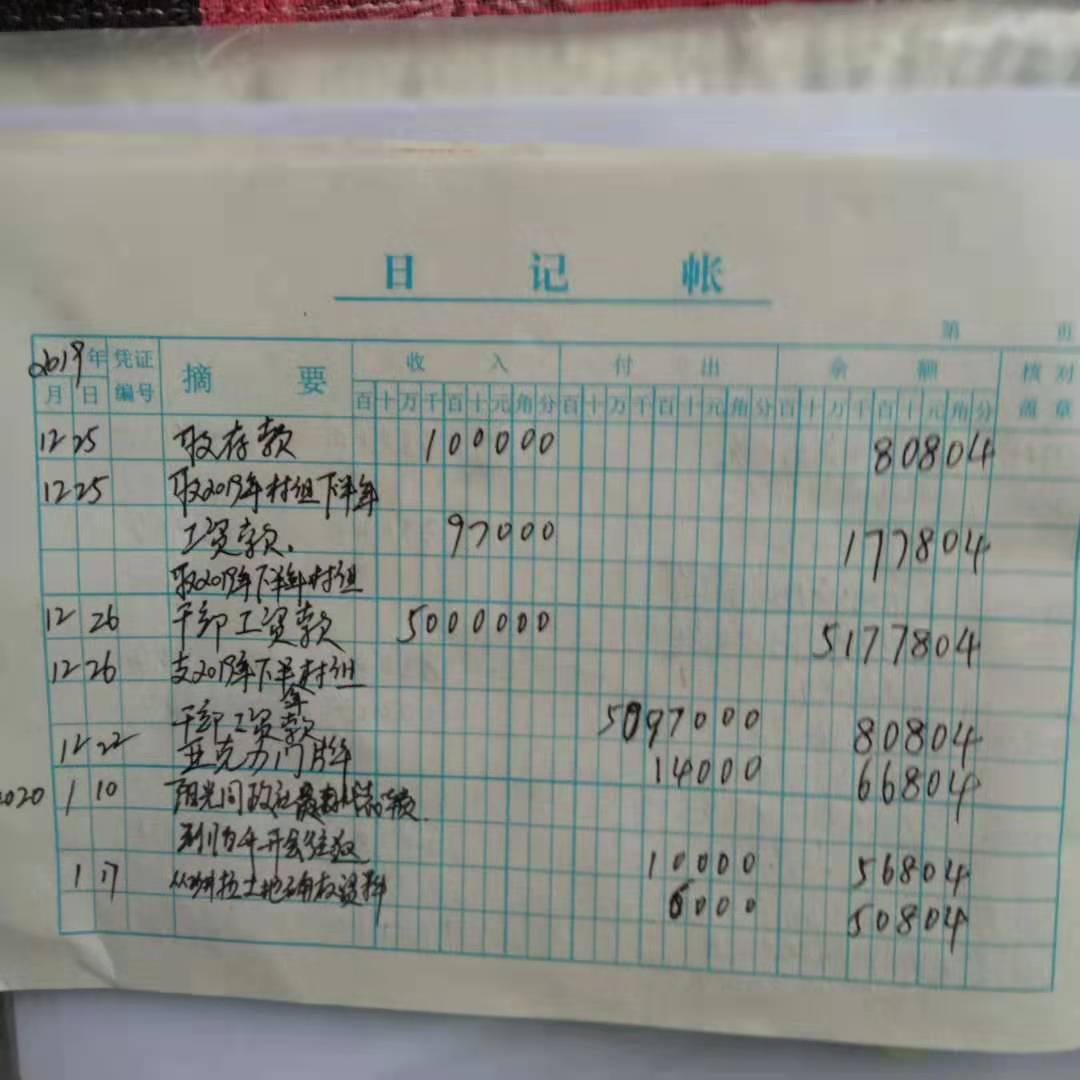 日记帐
第 页
2019年 凭证编号 摘要 收入 付出 余额 核对盖章
月 日 百十万千百十元角分 百十万千百十元角分 百十万千百十元角分
12 25 取存款 100000 80804
12 25 取2019年村组下半年
工资款、 97000 177804
取2019年下半年村组
12 26 干部工资款 5000000 5177804
12 26 支2019年下半年村组
干部工资款 5097000 80804
12 22 亚克力门牌 14000 66804
2020 1 10 阳光
开会 10000 56804
1 17 拉土地确权资料 6000 50804